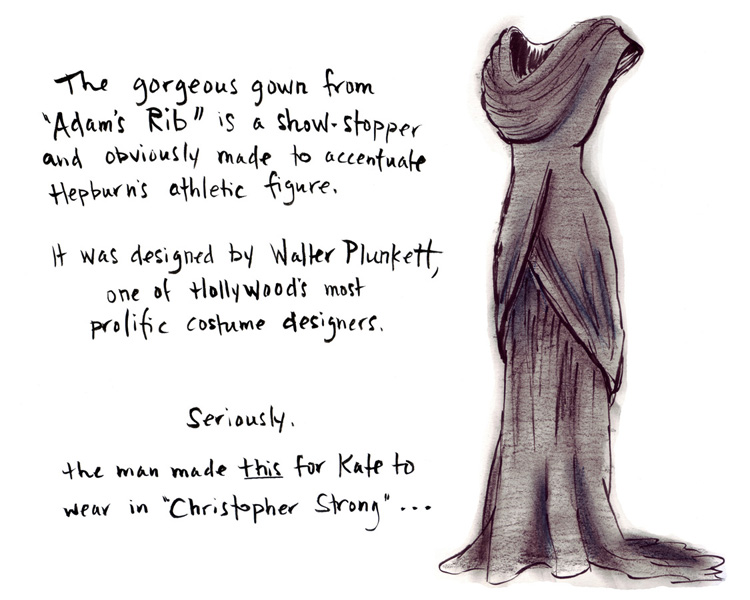 The gorgeous gown from
"Adam's Rib" is a show-stopper
and obviously made to accentuate
Hepburn's athletic figure.
It was designed by Walter Plunkett,
one of Hollywood's most
prolific costume designers.
Seriously.
the man made this for Kate to
wear in "Christopher Strong"...